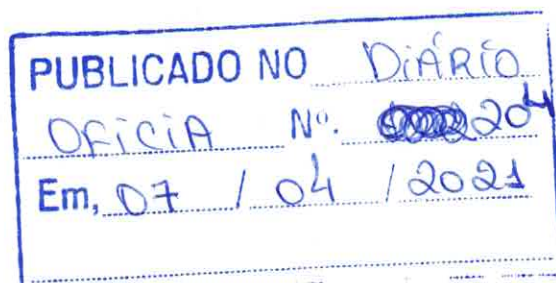 PUBLICADO NO DiÁRiO
OFiCiA Nº. 204
Em, 07 / 04 / 2021